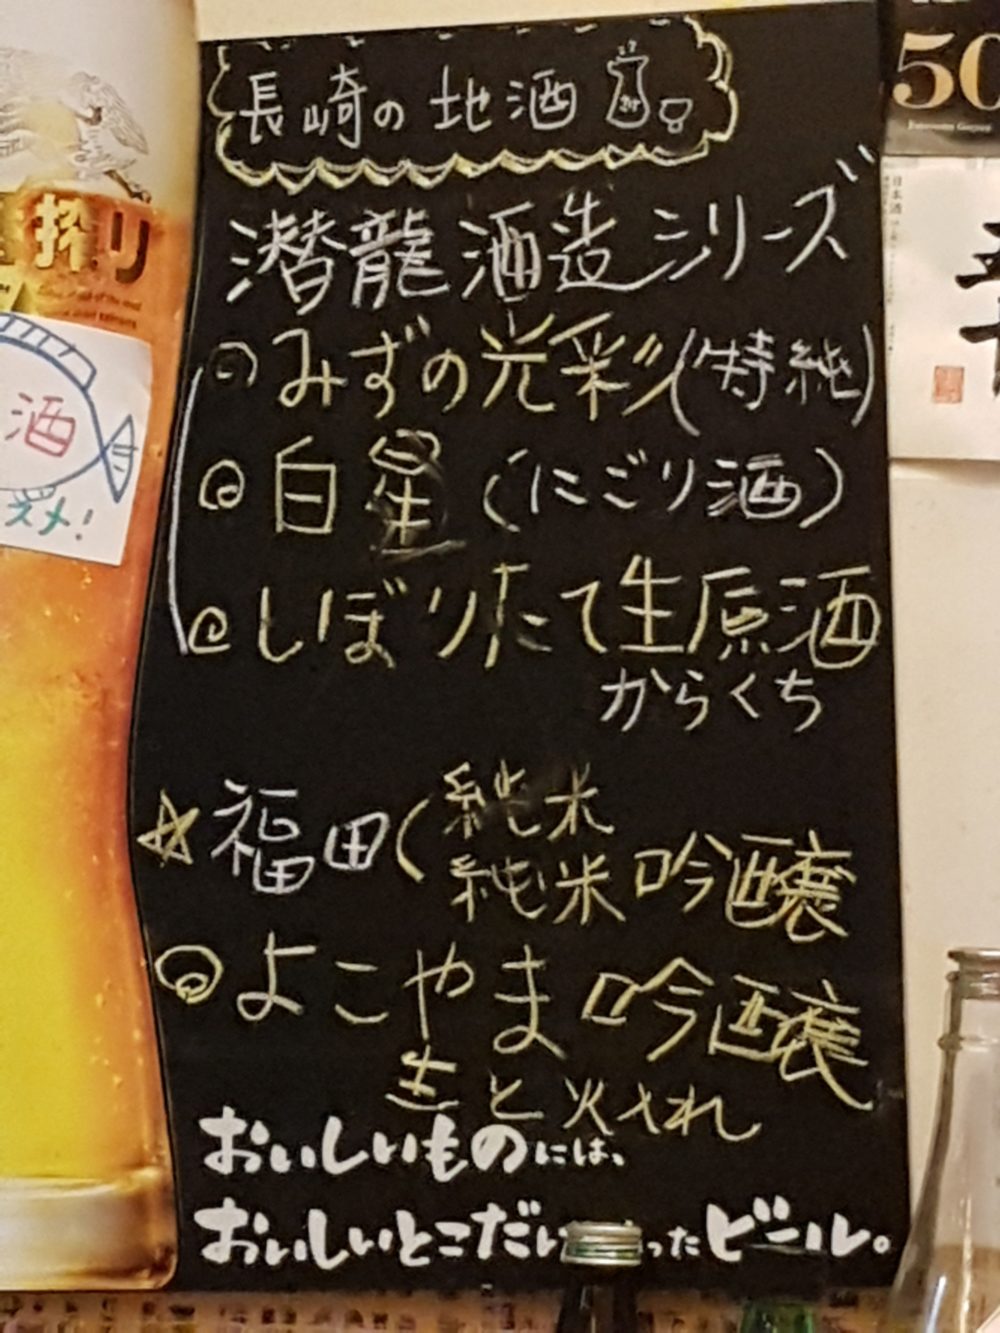 長崎の地酒
潜龍酒造シリーズ
みずの光彩(特純)
白星(にごり酒)
しぼりたて生原酒
からくち
☆福田(純米
純米吟醸
よこやま吟醸
生と火入れ
おいしいものには、
おいしいとこだい ったビール。
搾り
酒
スメ!
50
日本酒